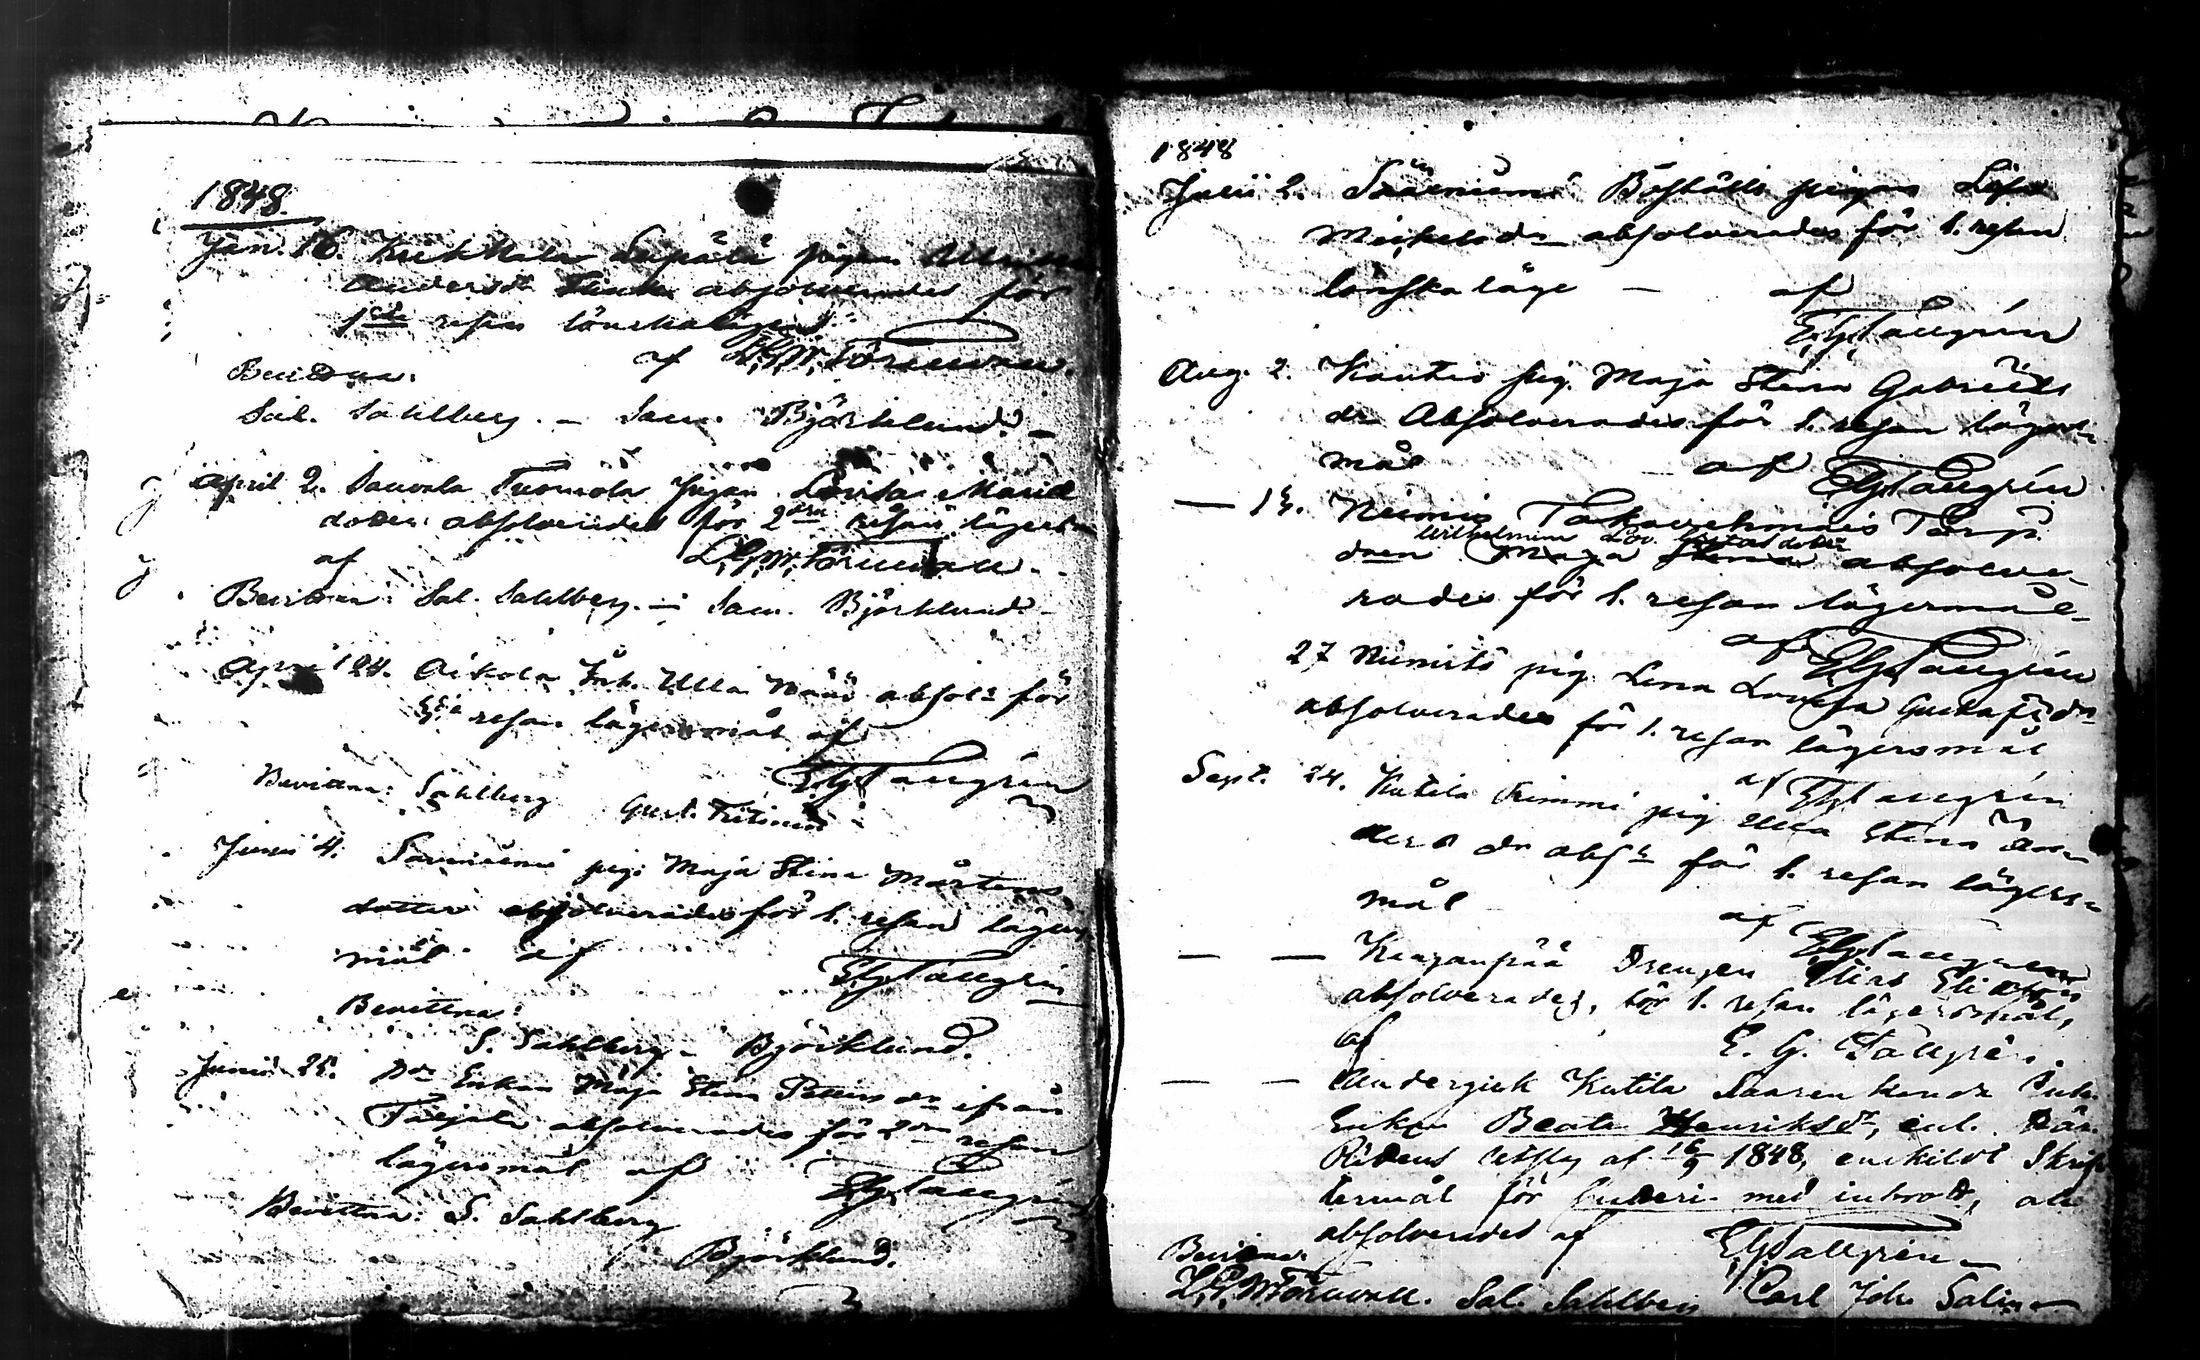 1848.
Jan. 16. Kukkala Seppälä pigan Ulrika
Andersdr absolverades för
1sta resan lönskaläge
af L.G.W. Törnvall.
Bevittna:
Sal. Sahlberg. – Sam. Björklund. –
April 2. Sauvala Tuomola pigan Lovisa Maria
dotter absolverades för 2dra resan lägersm
af L.G.W. Törnvall.
Bevittna: Sal. Sahlberg. – Sam. Björklund. –
April 24. Aikola Inh. Ulla absolv. för
resan lägersmål af
EGTallgrén
Bevittna: Sahlberg Gust.
Junii 4. pig. Maja Stina Mårtens
dotter absolverades för 1. resan lägers
mål af EGTallgrén
Bevittna:
S. Sahlberg – Björklund.
Junii 25. Enkan Maja Stina Petters dr ifrån
absolverades för 2dra resan
lägersmål af EGTallgrén
Bevittna: S. Sahlberg
Björklund.
1848
Julii 2. Boställs pigan Lisa
Mickelsdr absolverades för 1. resan
lönskaläge – af
E.G. Tallgrén
Aug. 2. Kautio pig. Maja Stina Gabriels
dr Absolverades för 1. resan lägers
mål af EGTallgrén
— 13. Niemis Takavehmais Torp.
Wilhelmina Lov. Gustafsdotter
dren Maja Stina absolve-
rades för 1. resan lägersmål
af EGTallgrén
27 Niemis pig Lena Lovisa Gustafsdr
absolverades för 1. resan lägersmål
af EGTallgrén
Sept. 24. Kutila pig Ulla Stina An-
ders dr abs. för 1. resan lägers-
mål af EGTallgrén
— — Kanganpää Drengen Elias Eliasson
absolverades, för 1. resan lägersmål,
af E. G. Tallgrén.
— — Undergick Kutila Saarenkunda Inh.
Enkan Beata Henriksdr, enl. Hära
Rättens Utslag af 16/9 1848, enskildt Skrif
termål för hudelri med inbrott, och
absolverades af EGTallgrén –
Bevittna:
L.G.W. Törnvall. Sal. Sahlberg Carl Joh. Salin